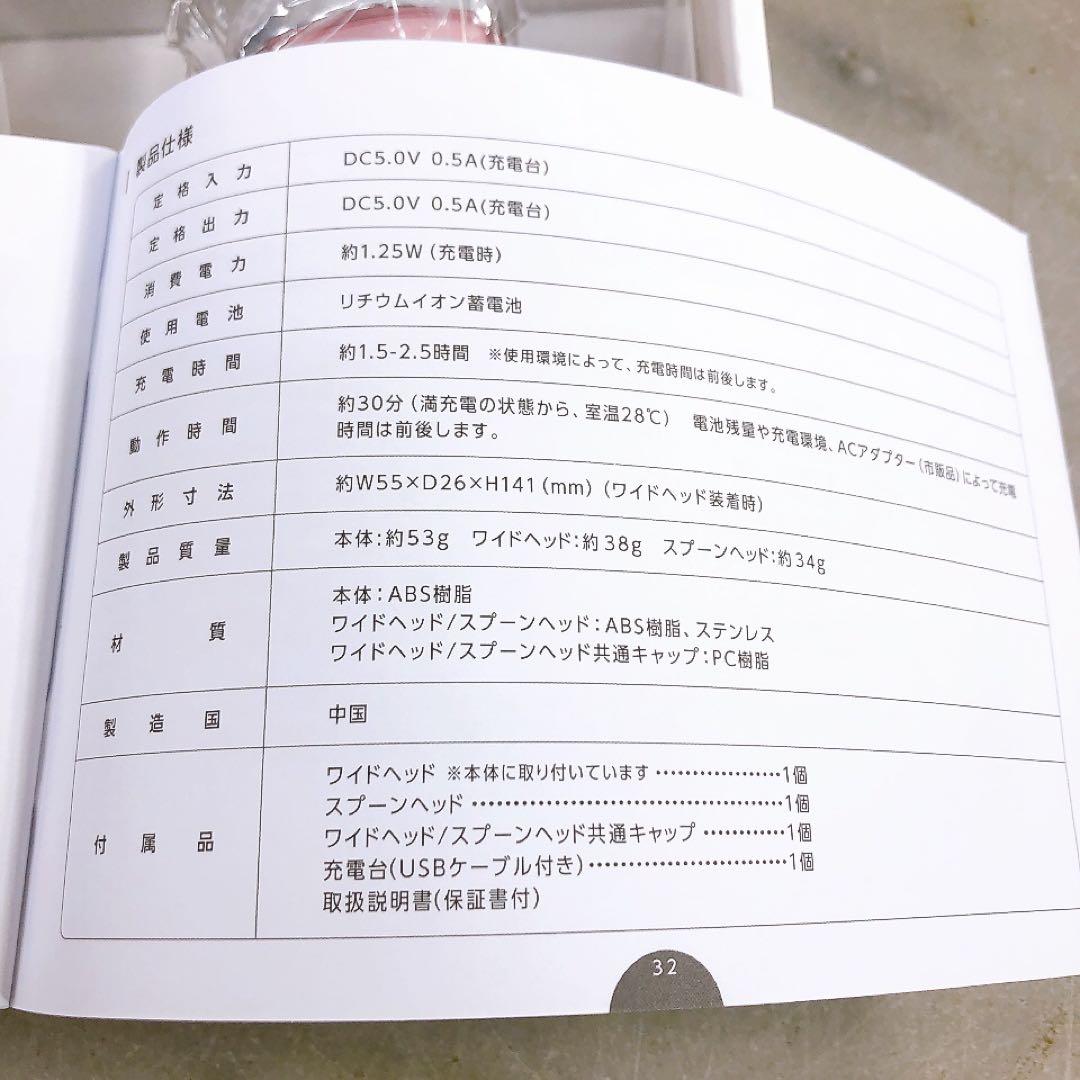 製品仕様
定格入力 DC5.0V 0.5A(充電台)
定格出力 DC5.0V 0.5A(充電台)
消費電力 約1.25W(充電時)
使用電池 リチウムイオン蓄電池
充電時間 約1.5-2.5時間 ※使用環境によって、充電時間は前後します。
動作時間 約30分(満充電の状態から、室温28℃) 電池残量や充電環境、ACアダプター(市販品)によって充電
時間は前後します。
外形寸法 約W55×D26×H141(mm)(ワイドヘッド装着時)
製品質量 本体:約53g ワイドヘッド:約38g スプーンヘッド:約34g
材質 本体:ABS樹脂
ワイドヘッド/スプーンヘッド:ABS樹脂、ステンレス
ワイドヘッド/スプーンヘッド共通キャップ:PC樹脂
製造国 中国
付属品 ワイドヘッド ※本体に取り付いています……………1個
スプーンヘッド……………………………………1個
ワイドヘッド/スプーンヘッド共通キャップ…………1個
充電台(USBケーブル付き)………………………1個
取扱説明書(保証書付)
32